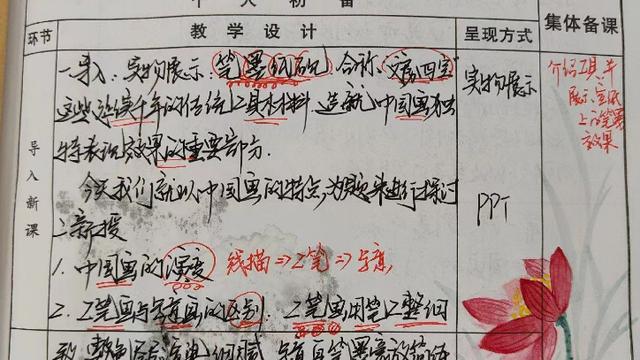 个人初备
环节 教学设计 呈现方式 集体备课
一导入：实物展示：笔墨纸砚 合称"文房四宝"
这些延续千年的传统工具材料 造就中国画独
特表现效果的重要部分.
今天我们就以中国画的特点,为题来进行探讨
二新授
1. 中国画的演变 线描⇒工笔⇒写意
2. 工笔画与写意画的区别: 工笔画用笔工整细
导入新课
实物展示
PPT
介绍工具,并
展示宣纸
上的笔墨
效果